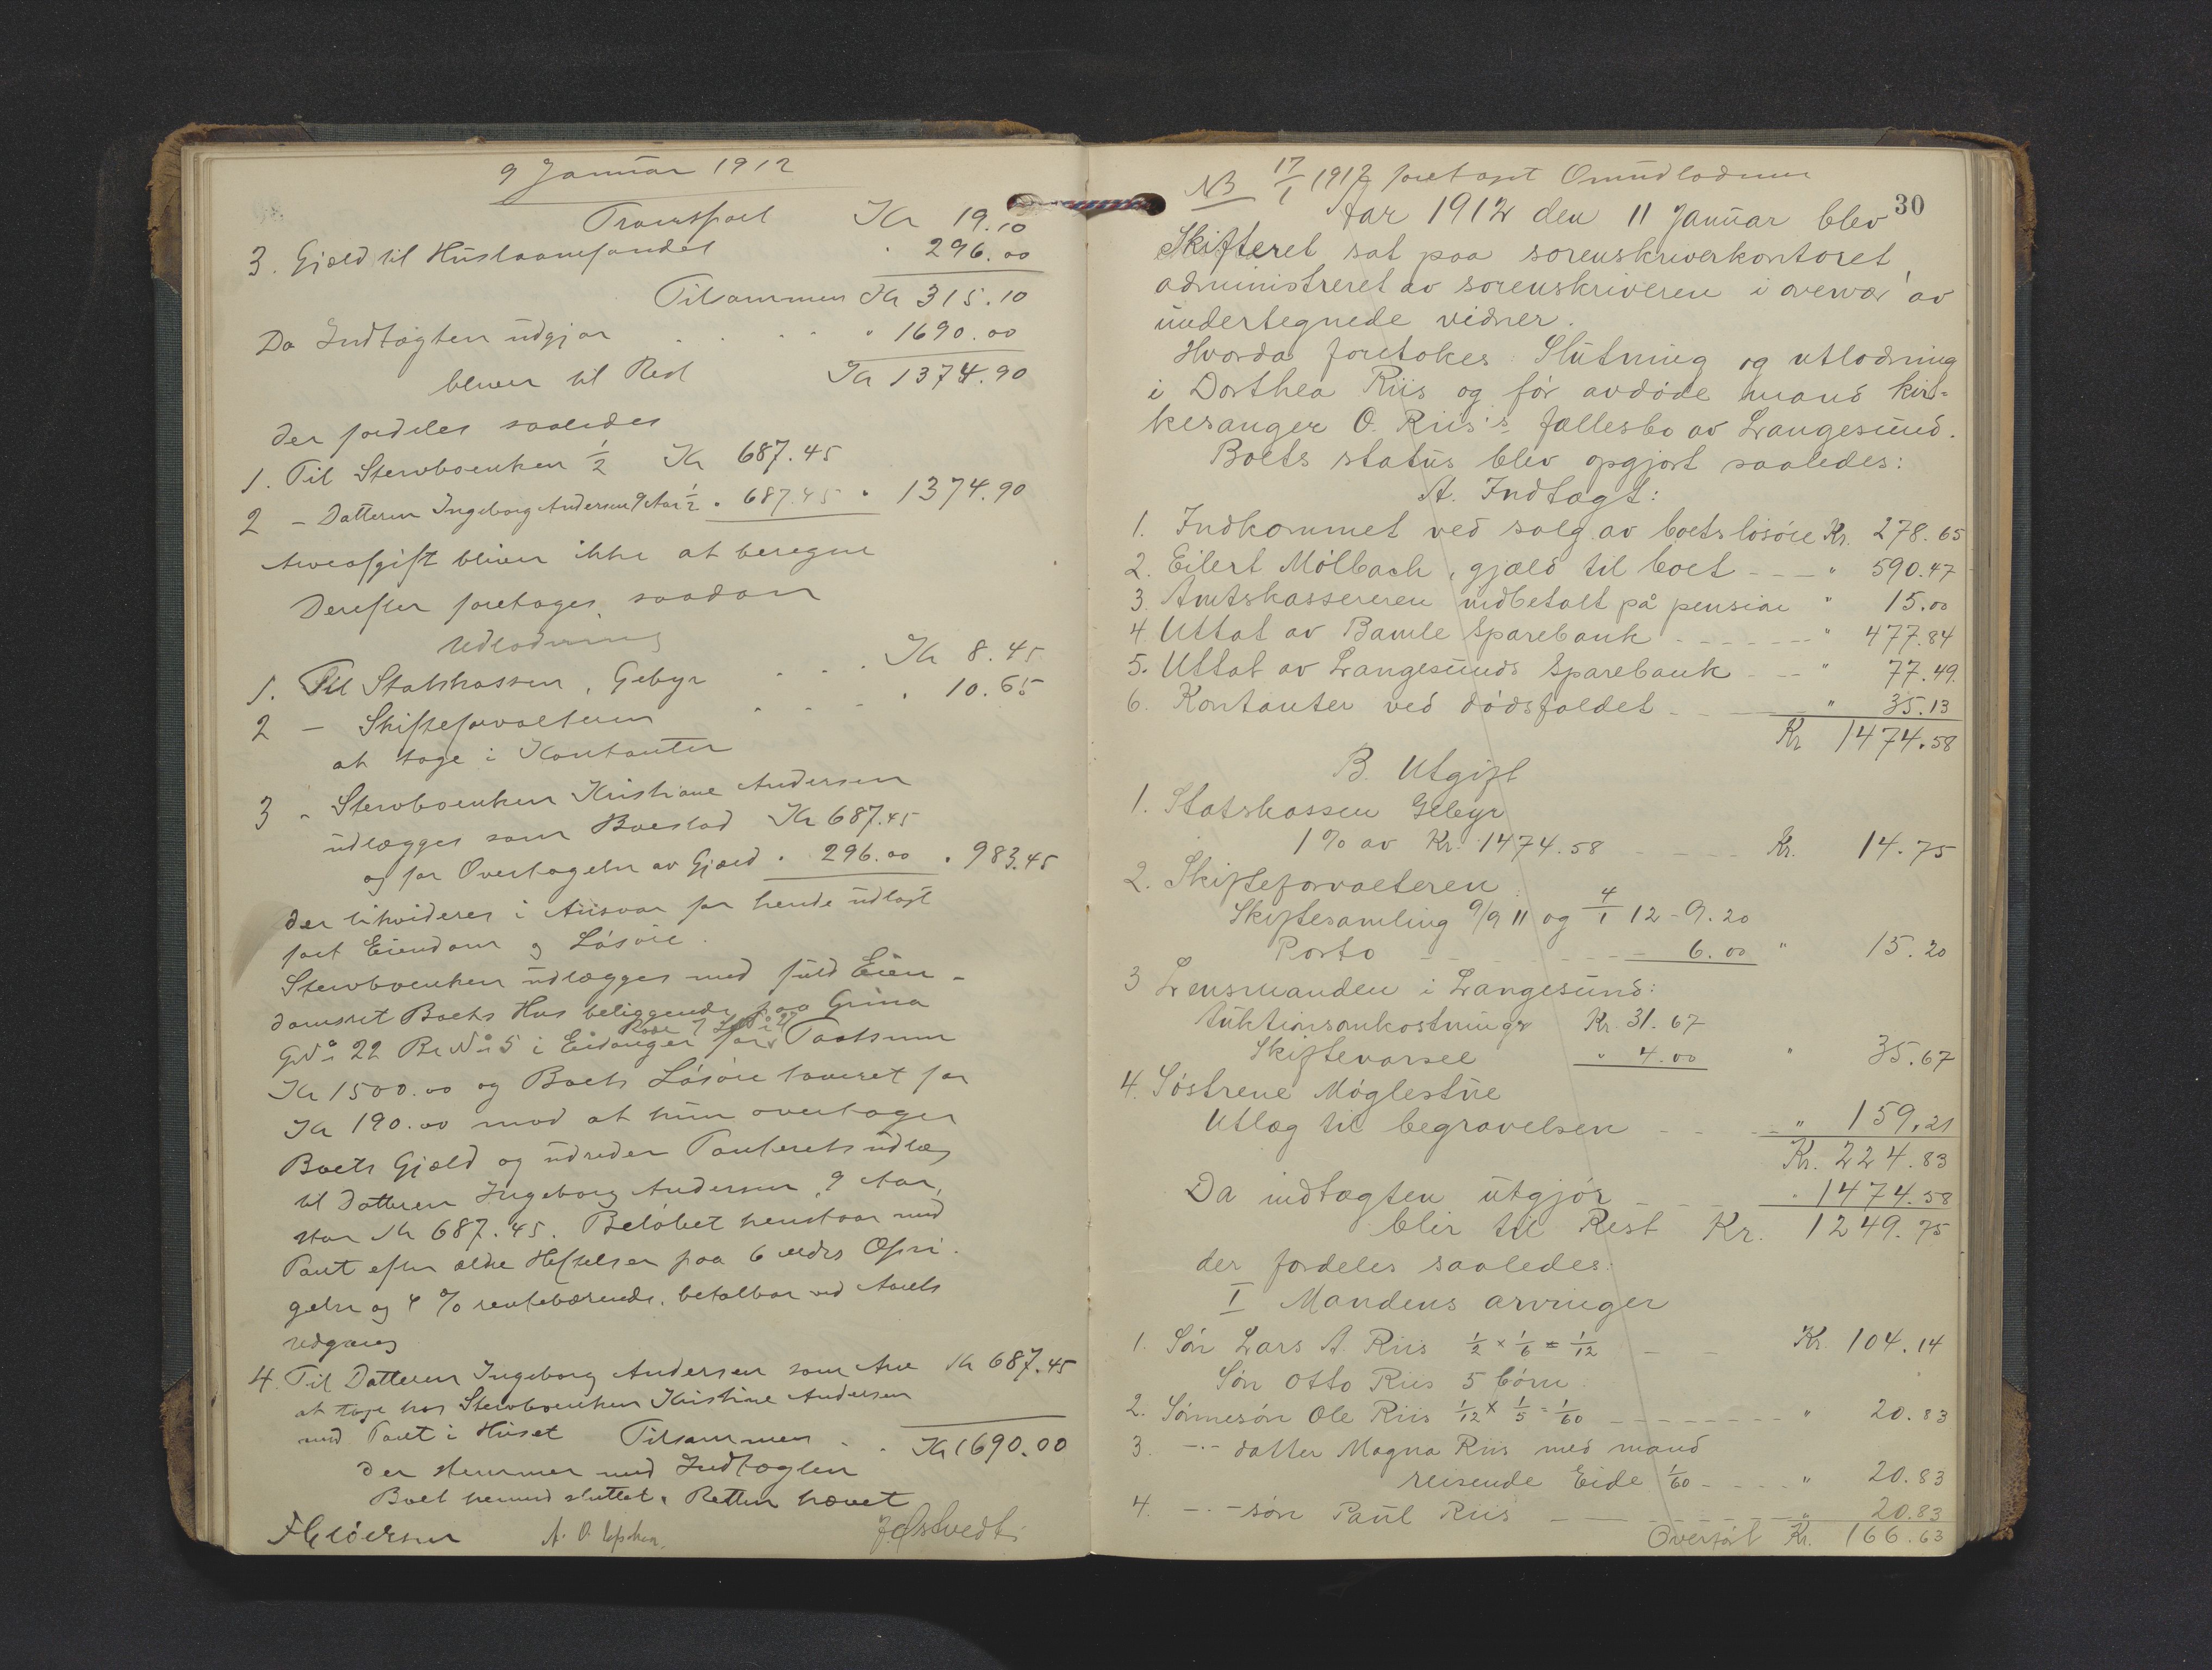 9 Januar 1912
Transport Kr 19.10
3. Gjæld til Huslaanefondet " 296.00
Tilsammen Kr 315.10
Da Indtægten udgjør . . . . " 1690.00
bliver til Rest Kr 1374.90
der fordeles saaledes
1. Til Stervboenken ½ Kr 687.45
2 – Datteren Ingeborg Andersen 9 Aar ½ " 687.45 " 1374.90
Arveafgift bliver ikke at beregne
Derefter foretages saadan
Udlodning
1. Til Statskassen, Gebyr . . . Kr 8.45
2 – Skifteforvalteren . . . . 10.65
at tage i Kontanter
3 – Stervboenken Kristiane Andersen
udlægges som Boeslod Kr 687.45
og for Overtagelse av Gjæld " 296.00 " 983.45
der likvideres i Ansvar for hende udlagt
fast Eiendom og Løsøre.
Stervboenken udlægges med fuld Eien-
domsret Boets Hus beliggende paa Grina
GNo 22 BrNo 5 i Eidanger for Taxtsum
Kr 1500.00 og Boets Løsøre taxeret for
Kr 190.00 mod at hun overtager
Boets Gjæld og udreder Panteretsudlæg
til Datteren Ingeborg Andersen, 9 Aar,
stor Kr 687.45. Beløbet henstaar med
Pant efter ældre Heftelser paa 6 Mdrs Opsi-
gelse og 4 % rentebærende, betalbar ved Aarets
Udgang
4. Til Datteren Ingeborg Andersen som Arv Kr 687.45
at tage hos Stervboenken Kristine Andersen
med Pant i Huset Tilsammen . . Kr 1690.00
der stemmer med Indtægten
Boet hermed sluttet. Retten hævet
J. Østvedt
NB 17/1 1912 foretaget Omudlodning
30
Aar 1912 den 11 Januar blev
Skifteret sat paa sorenskriverkontoret
administreret av sorenskriveren i overvær av
undertegnede vidner.
Hvorda foretokes: Slutning og utlodning
i Dorthea Riis og før avdøde mand kir-
kesanger O. Riis's fællesbo av Langesund.
Boets status blev opgjort saaledes:
A. Indtægt:
1. Indkommet ved salg av boets løsøre Kr. 278.65
2. Eilert Mølbach, gjæld til boet - - - " 590.47
3. Amtskassereren indbetalt på pension " 15.00
4. Uttat av Bamle Sparebank - - - - - " 477.84
5. Uttat av Langesunds Sparebank - - - " 77.49.
6. Kontanter ved dødsfaldet - - - " 35.13
Kr 1474.58
B. Utgift
1. Statskassen Gebyr
1 % av Kr. 1474.58 - - - - Kr. 14.75
2. Skifteforvalteren:
Skiftesamling 9/9 11 og 4/1 12 - 9.20
Porto - - - - - - - 6.00 " 15.20
3 Lensmanden i Langesund:
Auktionsomkostninger Kr. 31.67
Skiftevarsel " 4.00 " 35.67
4. Søstrene Møglestue
Utlæg til begravelsen - - - - " 159.21
Kr. 224.83
Da indtægten utgjør - - - " 1474.58
blir til Rest Kr. 1249.75
der fordeles saaledes:
I Mandens arvinger
1. Søn Lars A. Riis ½ × 1/6 = 1/12 - - Kr. 104.14
Søn Otto Riis 5 børn.
2. Sønnesøn Ole Riis 1/12 × 1/5 = 1/60 - - - - - - - " 20.83
3. -"- datter Magna Riis med mand
reisende Eide 1/60 - - - - " 20.83
4. -"- søn Paul Riis - - - - - - " 20.83
Overført Kr. 166.63